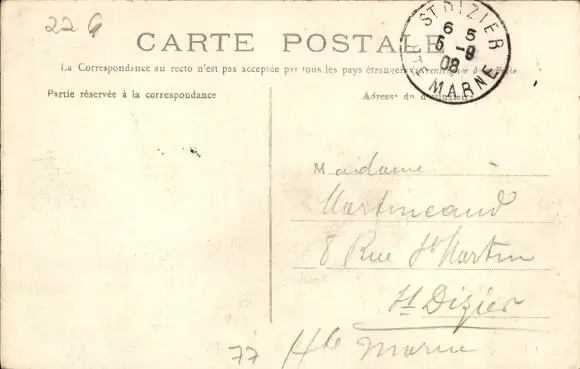 22 G
CARTE POSTALE
La Correspondance au recto n'est pas acceptée par tous les pays étrangers
Partie réservée à la correspondance
Adresse du destinataire
ST DIZIER
6 5
5 -9
08
Hte MARNE
Madame
Martineaud
8 Rue St Martin
St Dizier
Hte Marne
77